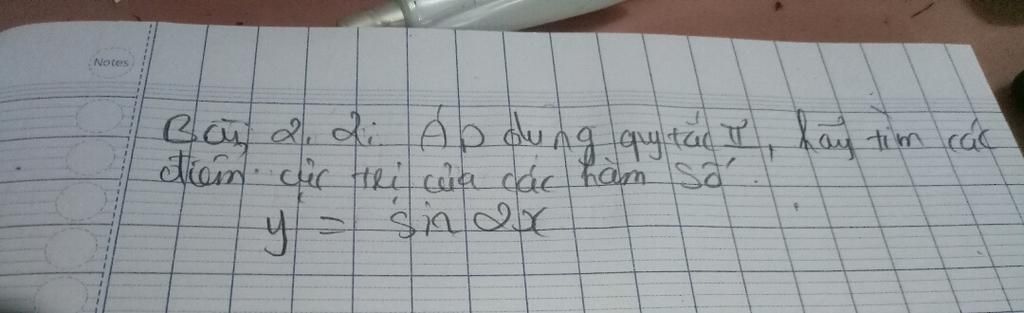 Notes
Bài 2.2: Áp dụng quy tắc II, hãy tìm các
điểm cực trị của các hàm số:
y = sin 2x